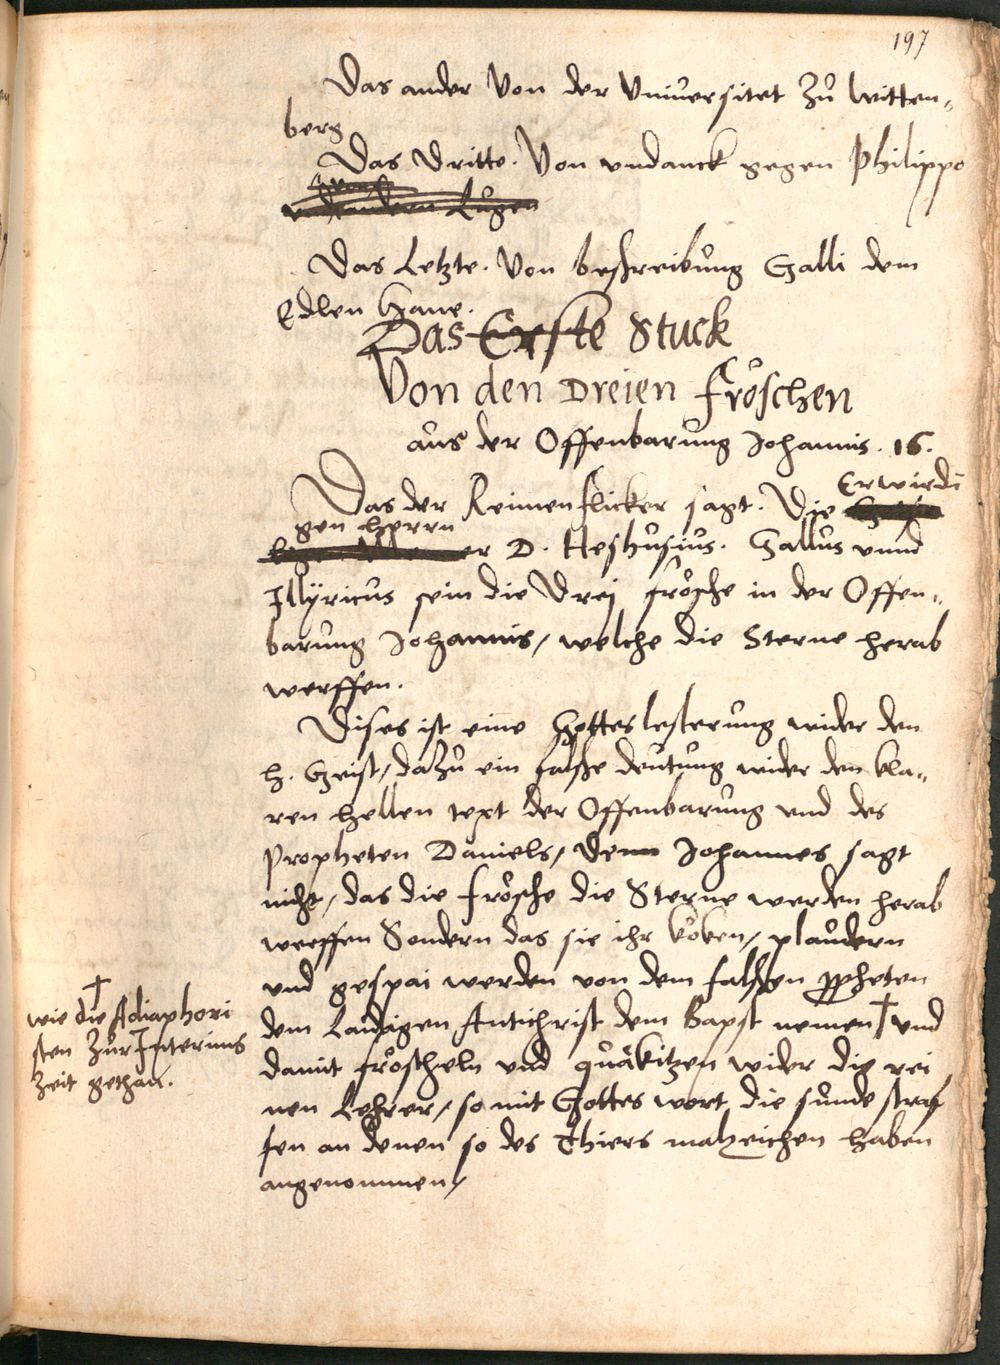 197
Das ander Von der Vniuersitet zů Witten-
berg
Das Dritte. Von vndanck gegen Philippo
Lůgen
Das Letzte. Von beschreibůng Galli dem
Edlen Hane.
Das Erste Stuck
Von den Dreien Fröschen
aůs der Offenbarůng Johannis. 16.
Das der Reimenflicker sagt. Die Erwirdi
gen Herrn D. Heshůsiůs. Gallůs vnnd
Illÿricůs sein die Drej frösche in der Offen-
barůng Johannis, welche die Sterne herab
werffen.
Dises ist eine Gotteslesterůng wider den
h. Geist, dazů ein falsche deůtůng wider den kla-
ren hellen text der Offenbarůng vnd des
Propheten Daniels, denn Johannes sagt
nicht, das die frösche die Sterne werden herab
werffen Sondern das sie ihr köken, plaůdern
vnd gespai werden von dem falschen ppheten
dem Laidigen Antichrist dem Bapst nemen † vnd
damit fröscheln vnd quäkitzen wider die rei
nen Lehrer, so mit Gottes wort die sůnde straf
fen an denen so des Thiers malzeichen haben
angenommen,
†
wie die Adiaphori
sten zůr Interims
zeit gethan.